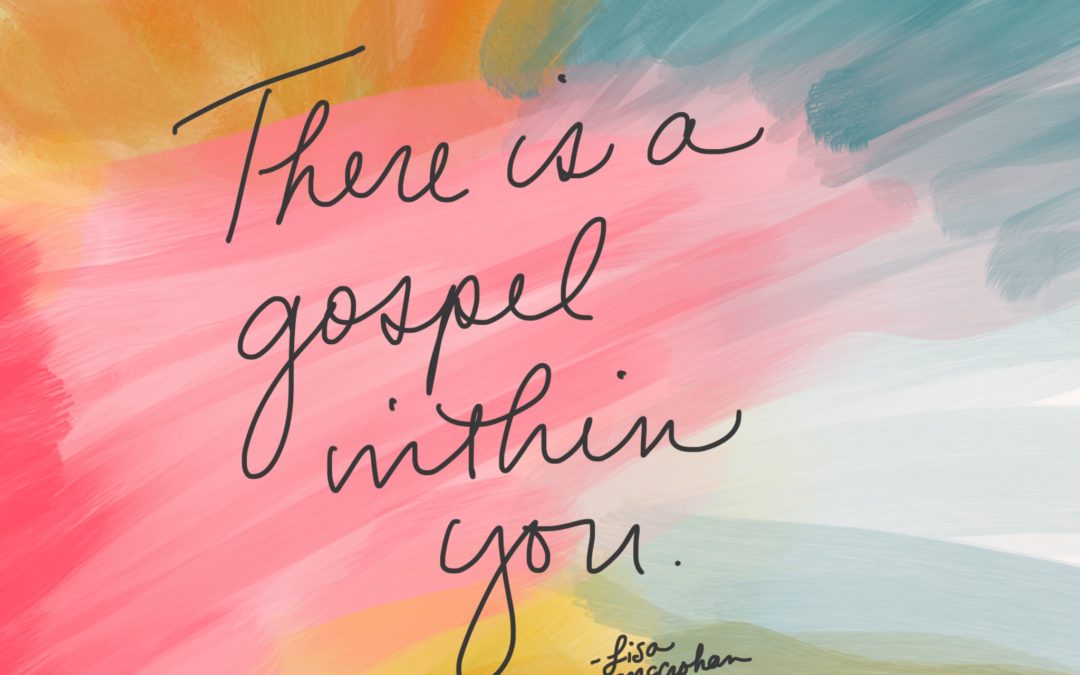 There is a
gospel
within
you.
- Lisa
McCrohan